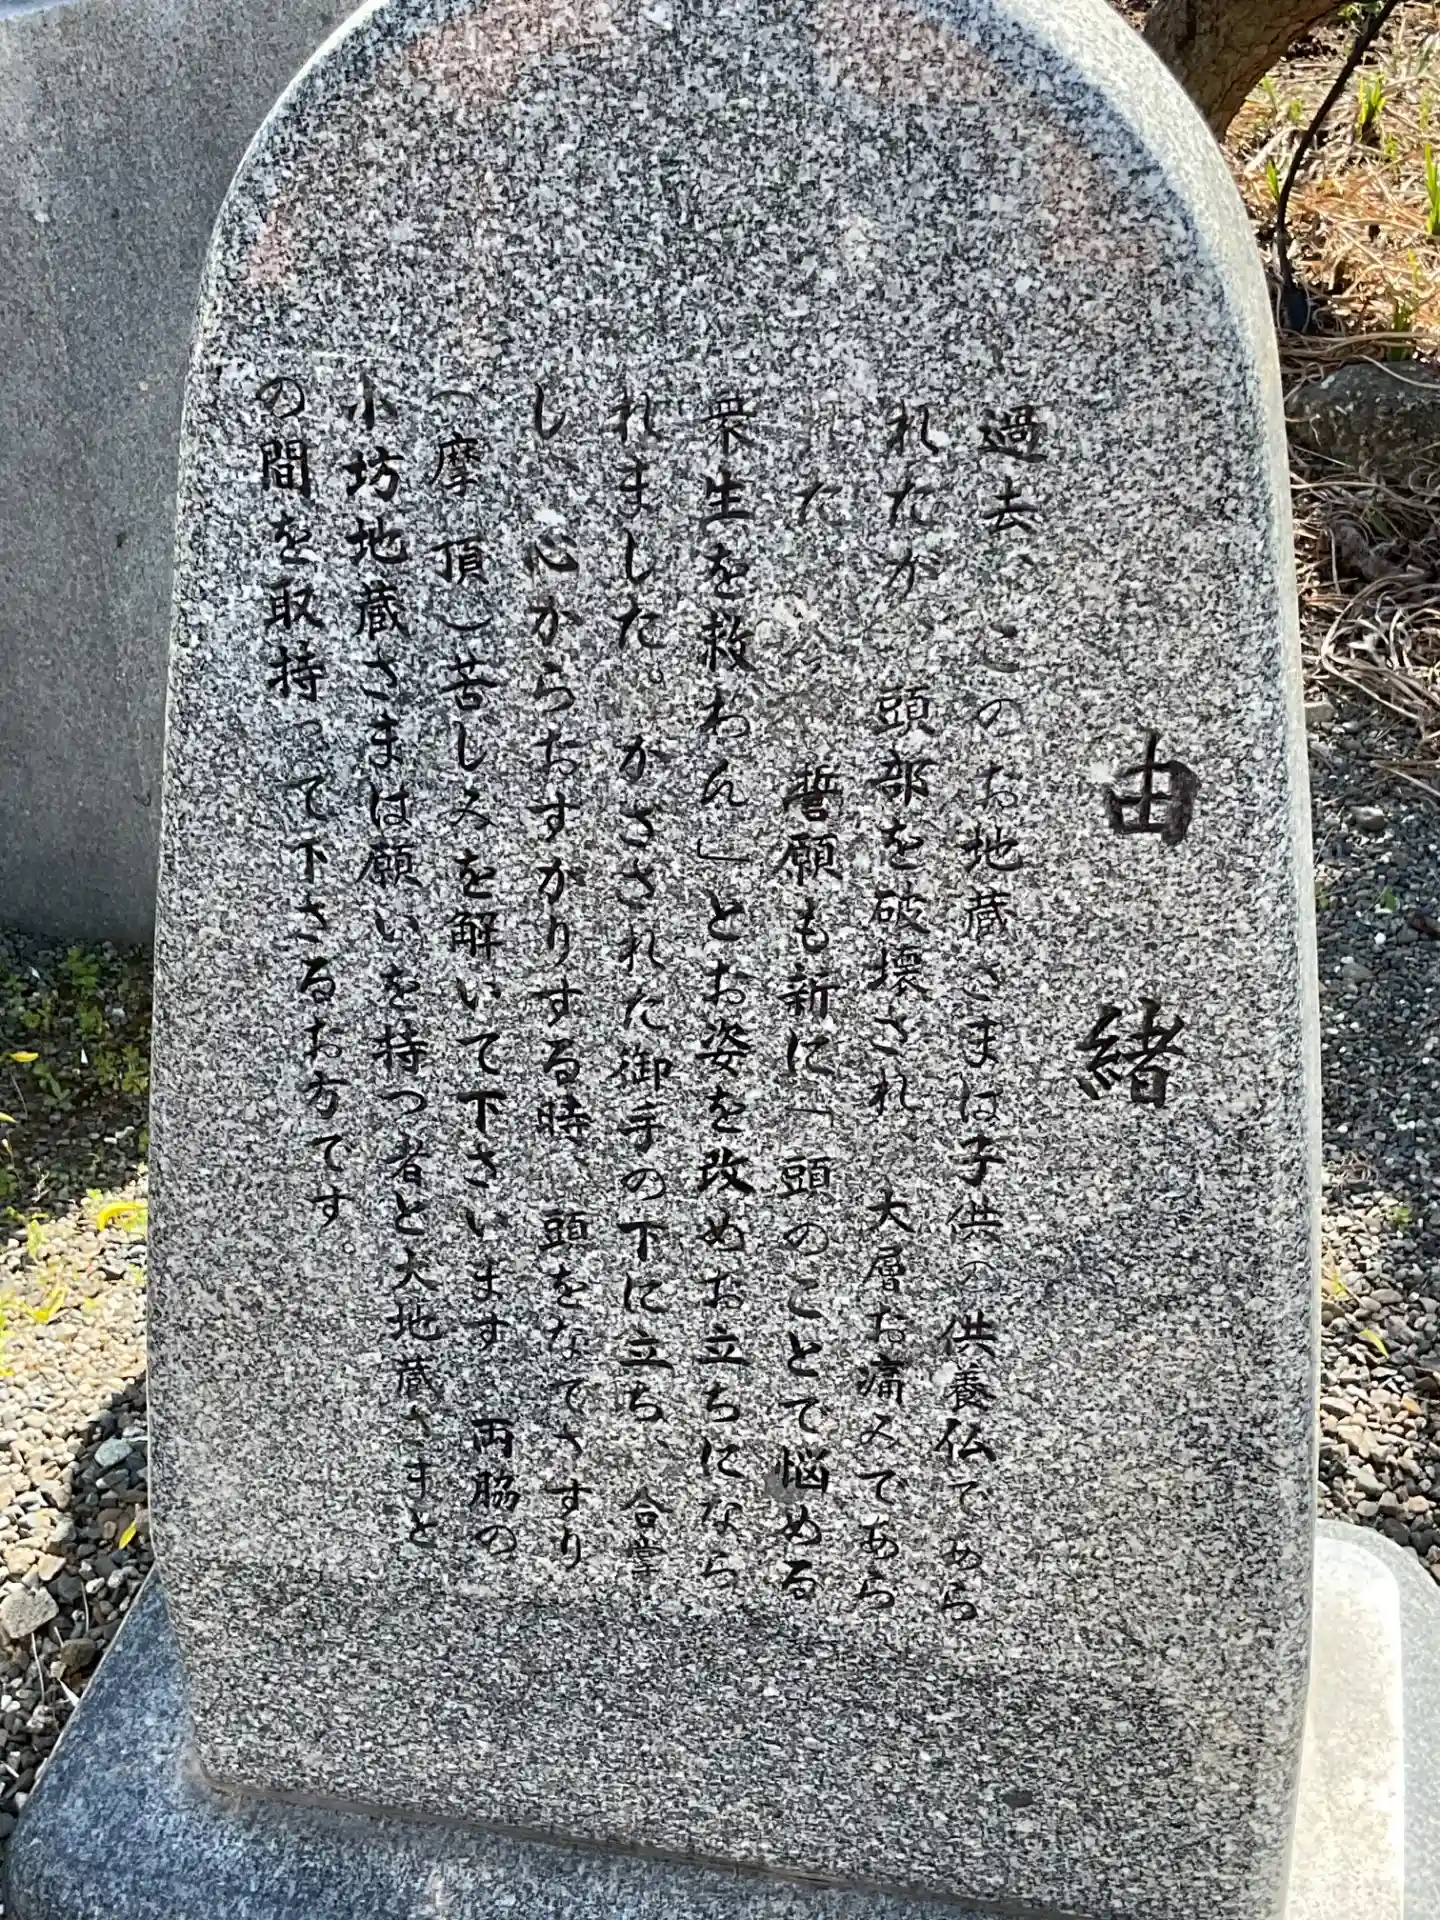 由緒
過去、このお地蔵さまは子供の供養仏であら
れたが、頭部を破壊され、大層お痛みであら
れた。今、誓願も新に「頭のことで悩める
衆生を救わん」とお姿を改めお立ちになら
れました。かざされた御手の下に立ち、合掌
し、心からおすがりする時、頭をなでさすり
(摩頂)苦しみを解いて下さいます。両脇の
小坊地蔵さまは願いを持つ者と大地蔵さまと
の間を取持って下さるお方です。